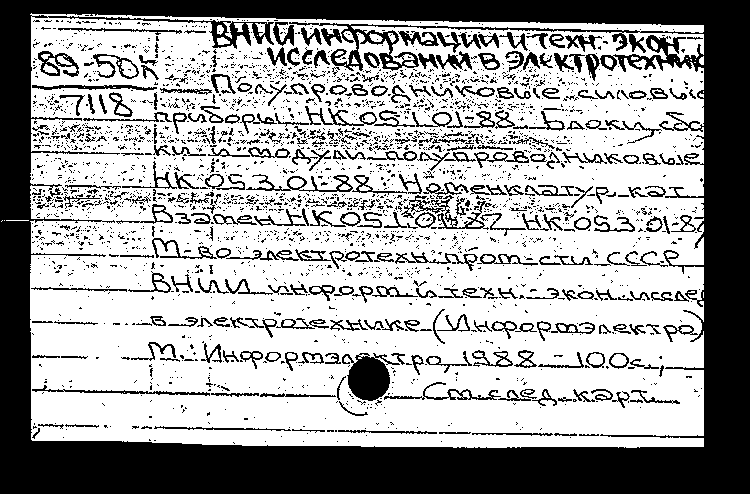 ВНИИ информации и техн.-экон.
исследований в электротехник
89-50К
7118
Полупроводниковые силовые
приборы: НК 05.1.01-88. Блоки, сбо
ки и модули полупроводниковые
НК 05.3.01-88: Номенклатур. кат.
Взамен НК 05.1.01-87, НК 05.3.01-87
М-во электротехн. пром-сти СССР,
ВНИИ информ. и техн.-экон. исслед
в электротехнике (Информэлектро)
М.: Информэлектро, 1988. - 100с.;
См. след. карт.